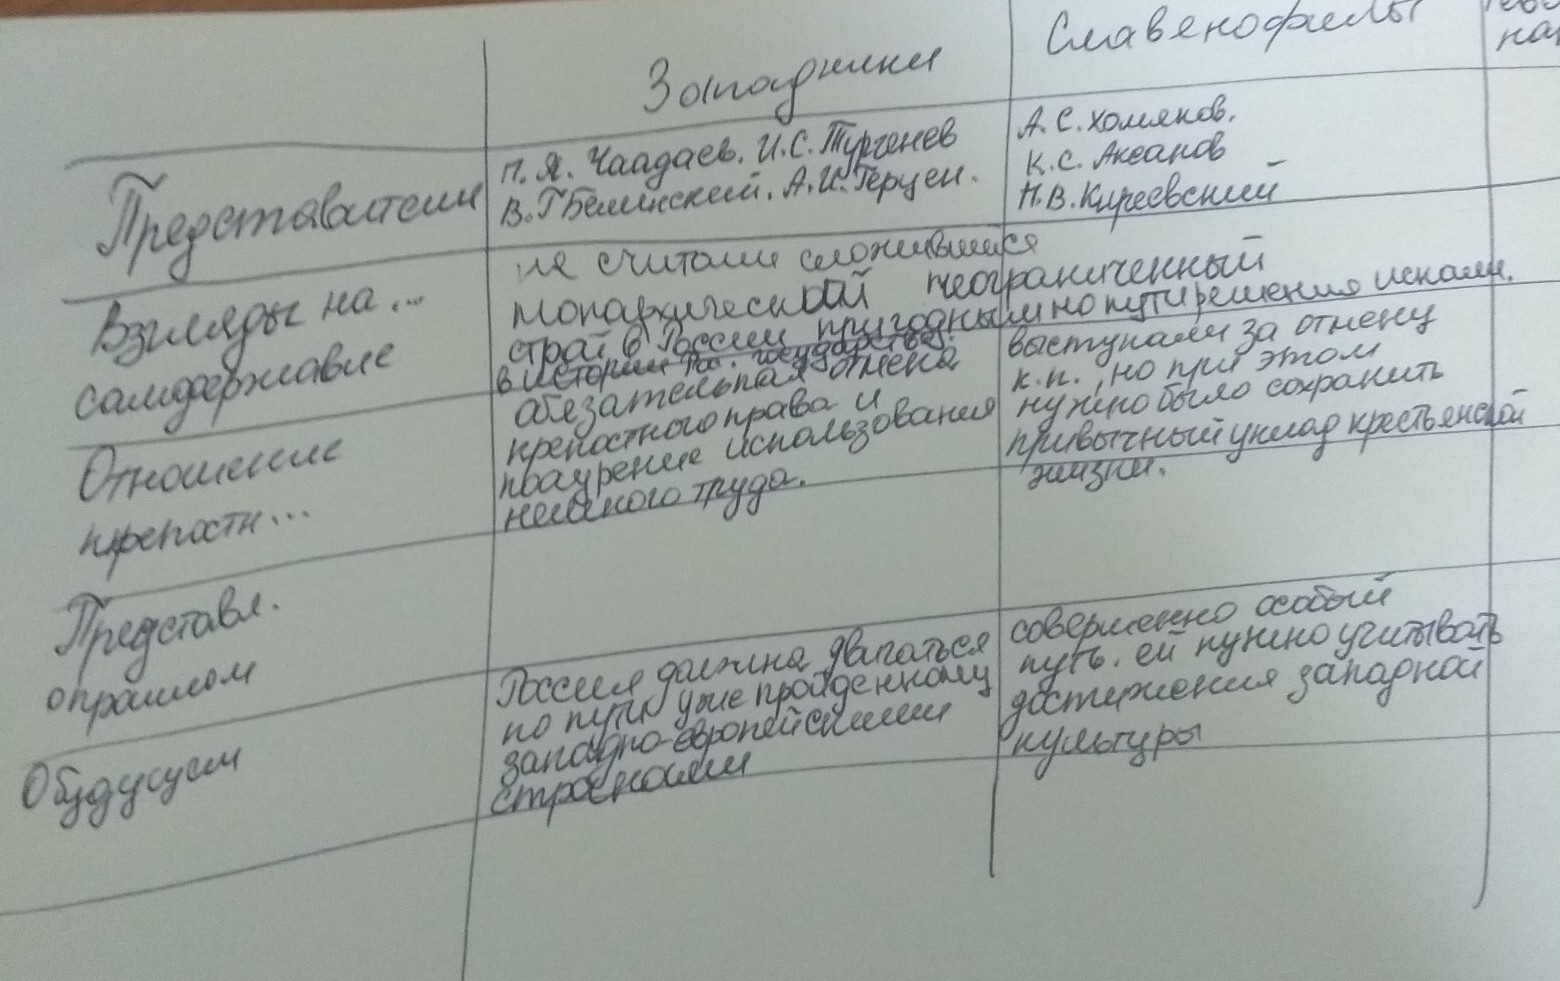 Западники
Славенофилы
Представители
П.Я. Чаадаев. И.С. Тургенев
В.Г Белинский. А.И. Герцен.
А.С. Хомяков.
К.С. Аксанов
П.В. Киреевский
Взгляды на...
самодержавие
не считали сложившийся
монархический неограниченный
строй в России пригодным но пути решения искали.
в истории гос. государства.
Отношение
крепостн...
обязательная отмена
крепостного права и
поащрение использования
наёмного труда.
выступали за отмену
к.п., но при этом
нужно было сохранить
привычный уклад крестьянской
жизни.
Представл.
о прошлом
О будущем
Россия должна двигаться
по пути уже пройденному
западно-европейскими
странами
совершенно особый
путь. ей нужно учитывать
достижения западной
культуры